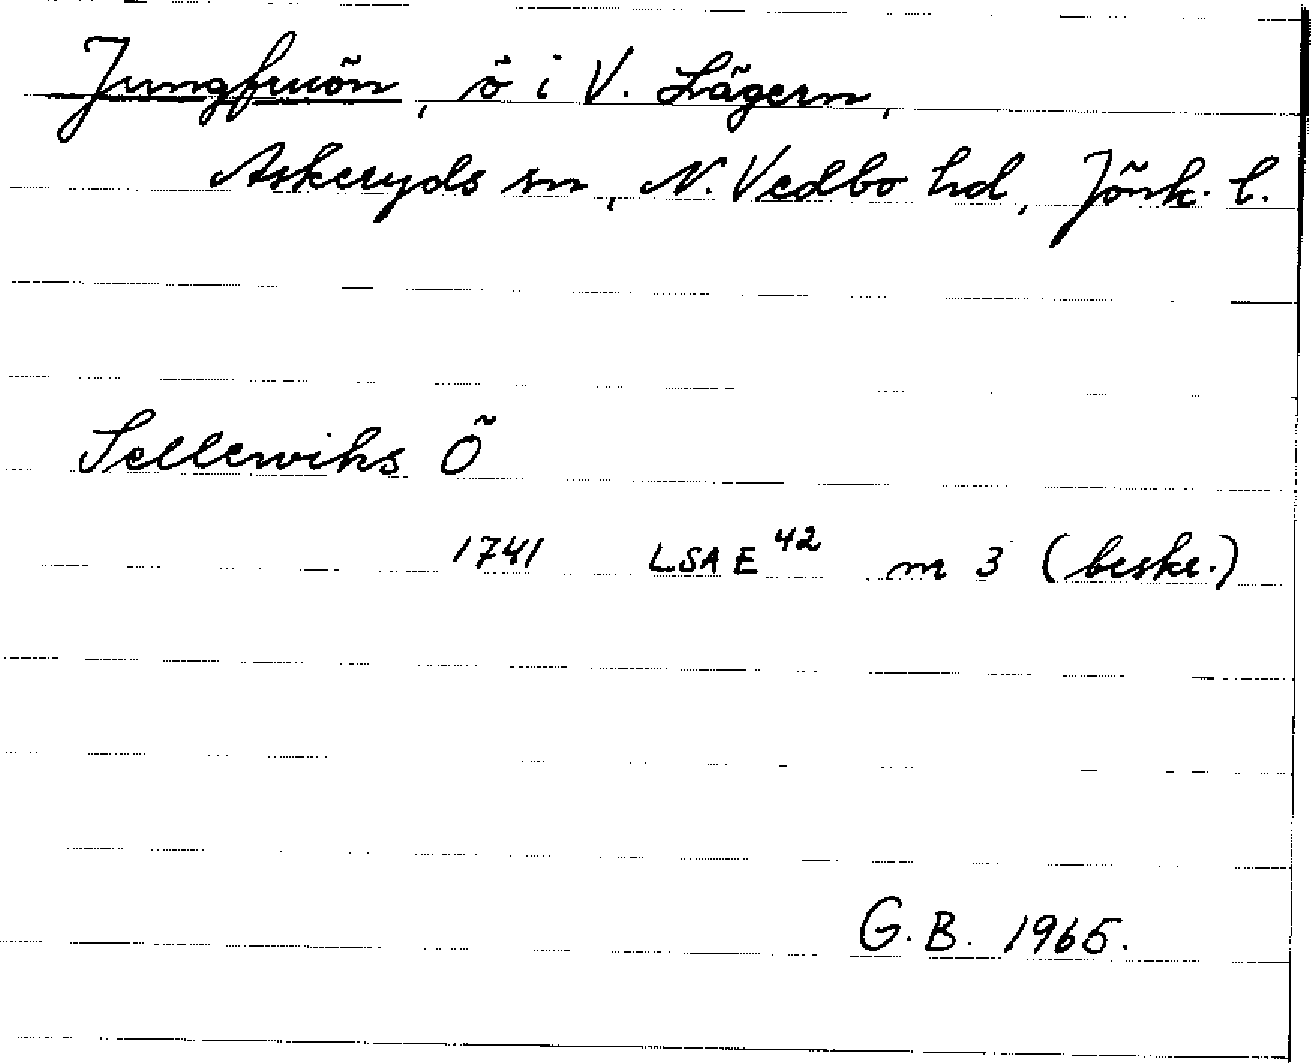 Jungfruön, ö i V. Lägern,
Askeryds sn, N. Vedbo hd, Jönk. l.
Sellewiks Ö
1741 LSA E 42 m 3 (beskr.)
G. B. 1965.